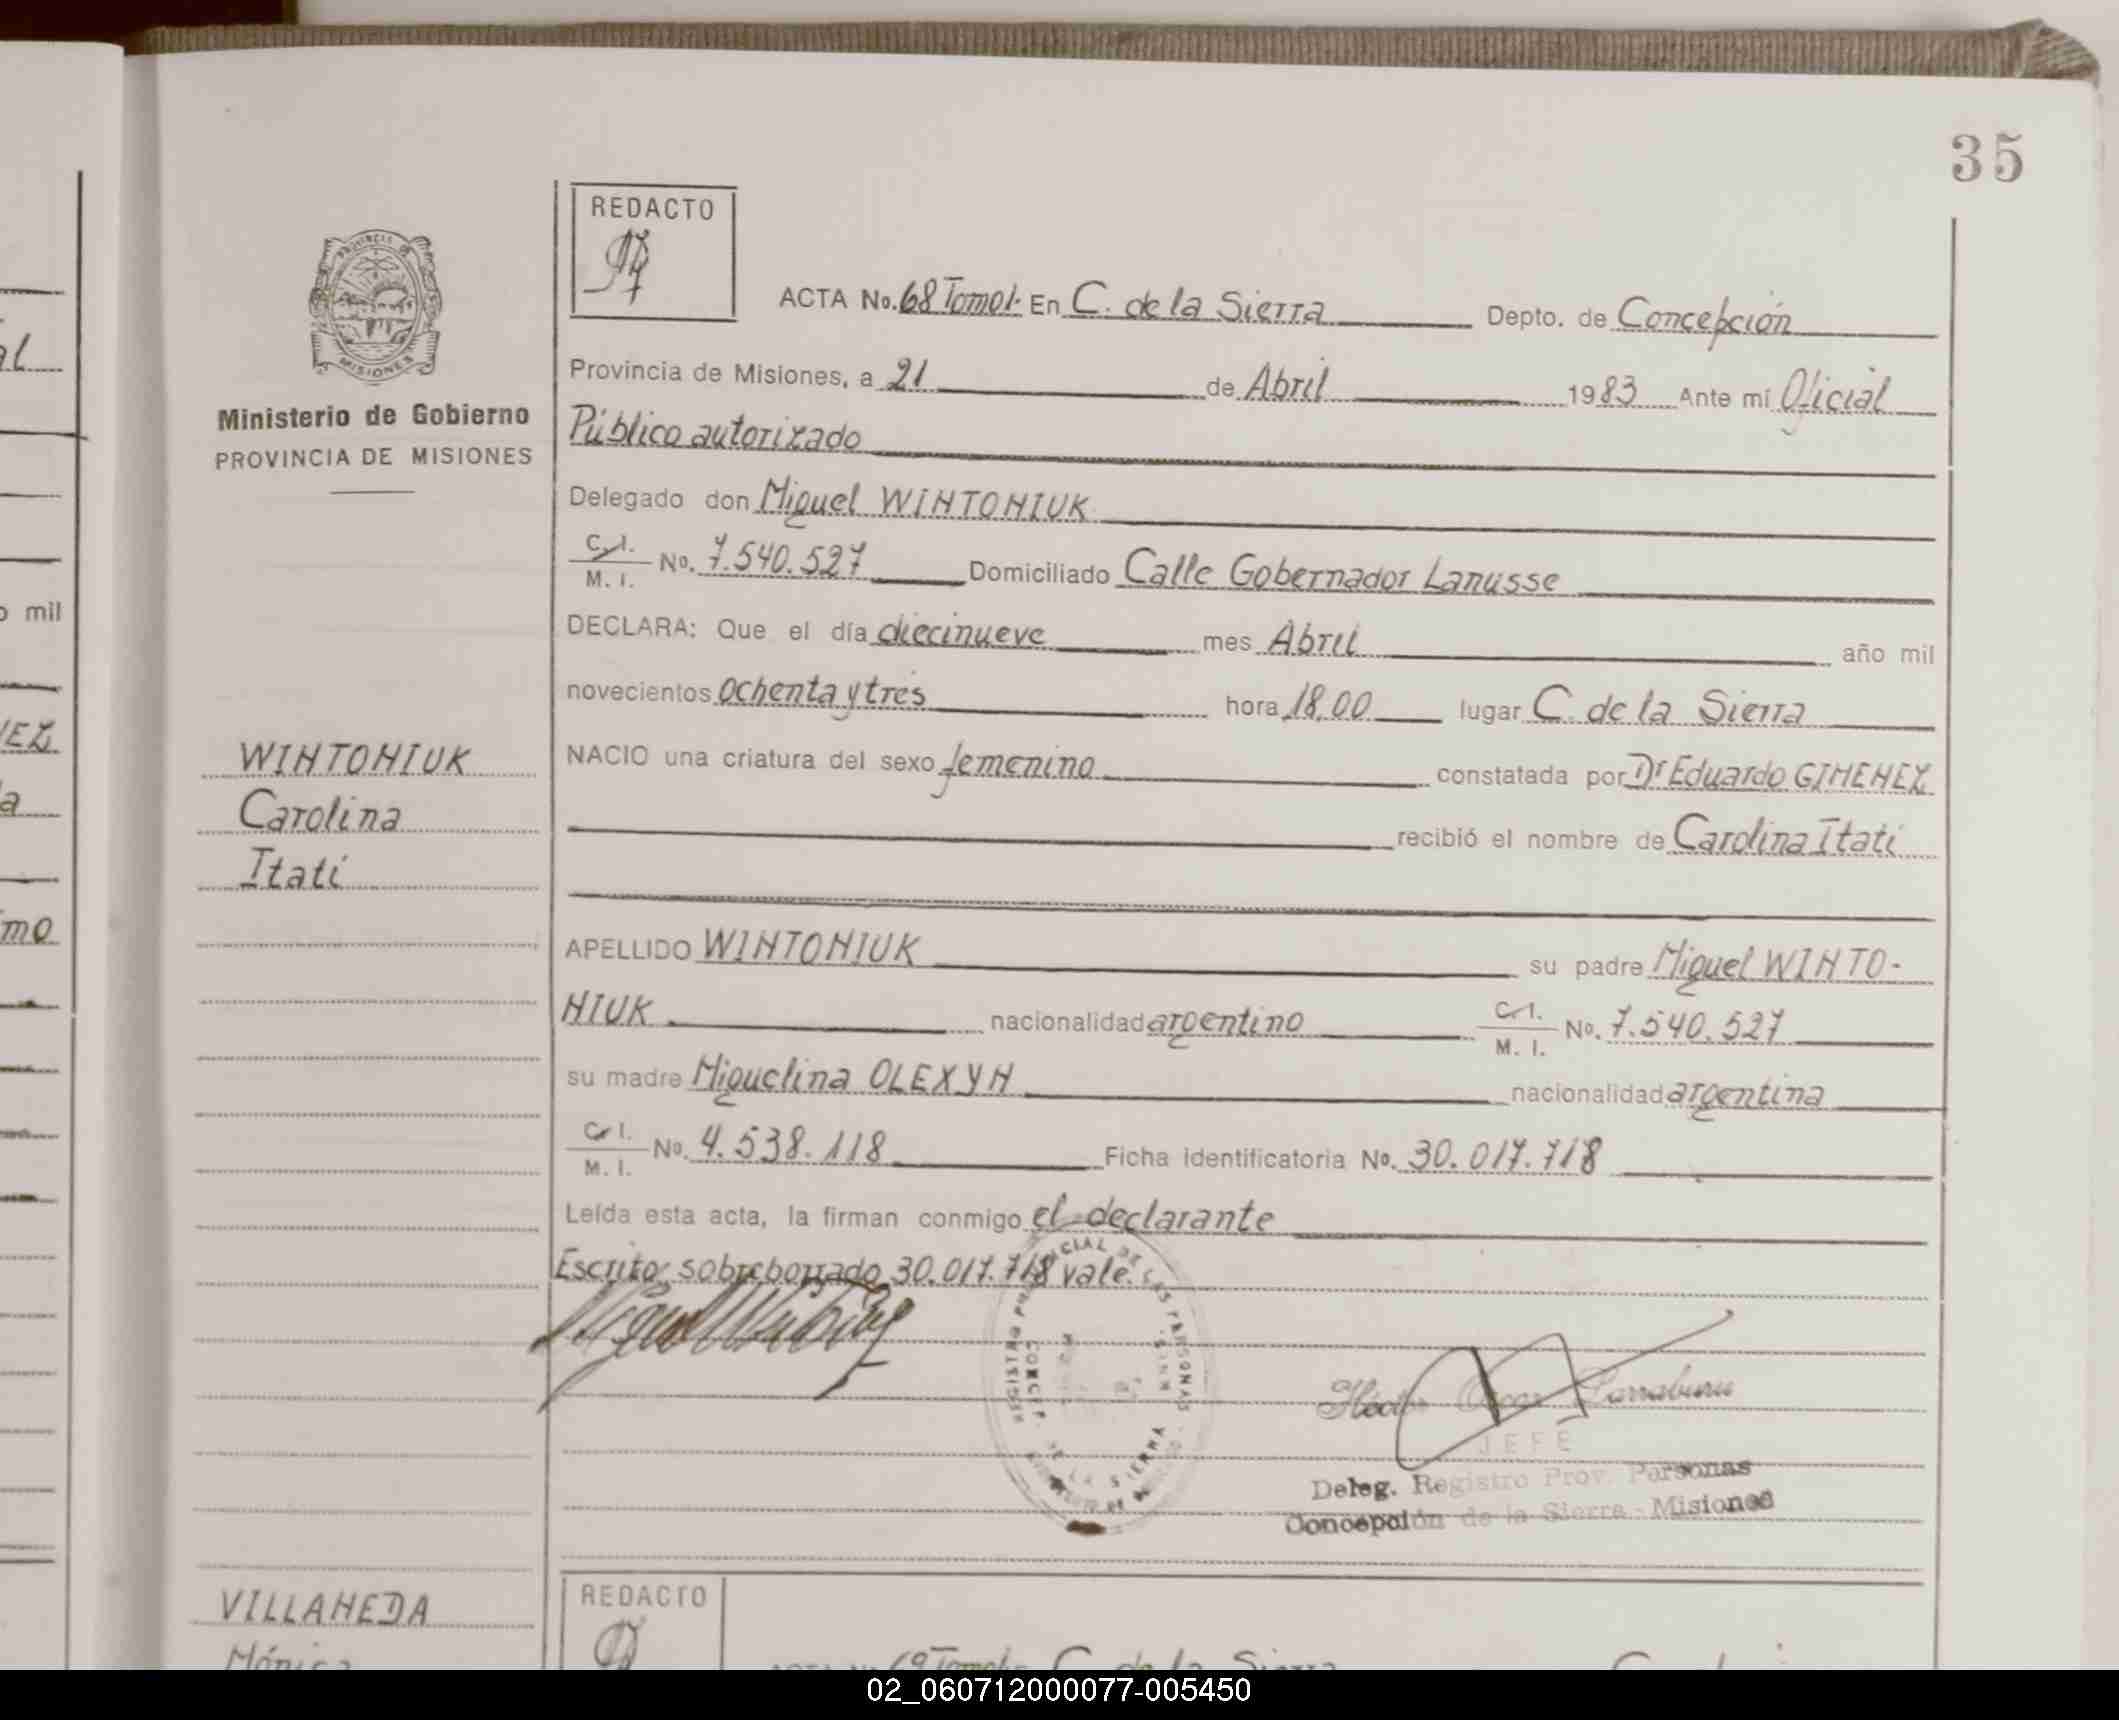 35
REDACTO
PROVINCIA DE
MISIONES
Ministerio de Gobierno
PROVINCIA DE MISIONES
ACTA No. 68 Tomo 1· En C. de la Sierra Depto. de Concepción
Provincia de Misiones, a 21 de Abril 1983 Ante mí Oficial
Público autorizado
Delegado don Miguel WINTONIUK
C. I.
M. I. No. 7.540.527 Domiciliado Calle Gobernador Lanusse
DECLARA: Que el día diecinueve mes Abril año mil
novecientos ochenta y tres hora 18,00 lugar C. de la Sierra
NACIO una criatura del sexo femenino constatada por Dr Eduardo GIMENEZ
recibió el nombre de Carolina Itatí
WINTONIUK
Carolina
Itatí
APELLIDO WINTONIUK su padre Miguel WINTO-
NIUK nacionalidad argentino C. I.
M. I. No. 7.540.527
su madre Miguelina OLEXYN nacionalidad argentina
C. I.
M. I. No. 4.538.118 Ficha identificatoria No. 30.017.718
Leída esta acta, la firman conmigo el declarante
Escrito sobreborrado 30.017.718 vale.
JEFE
Deleg. Registro Prov. Personas
Concepción de la Sierra - Misiones
VILLANEDA
Mónica
REDACTO
69 Tomo C. de la Sierra
o mil
mo
02_060712000077-005450